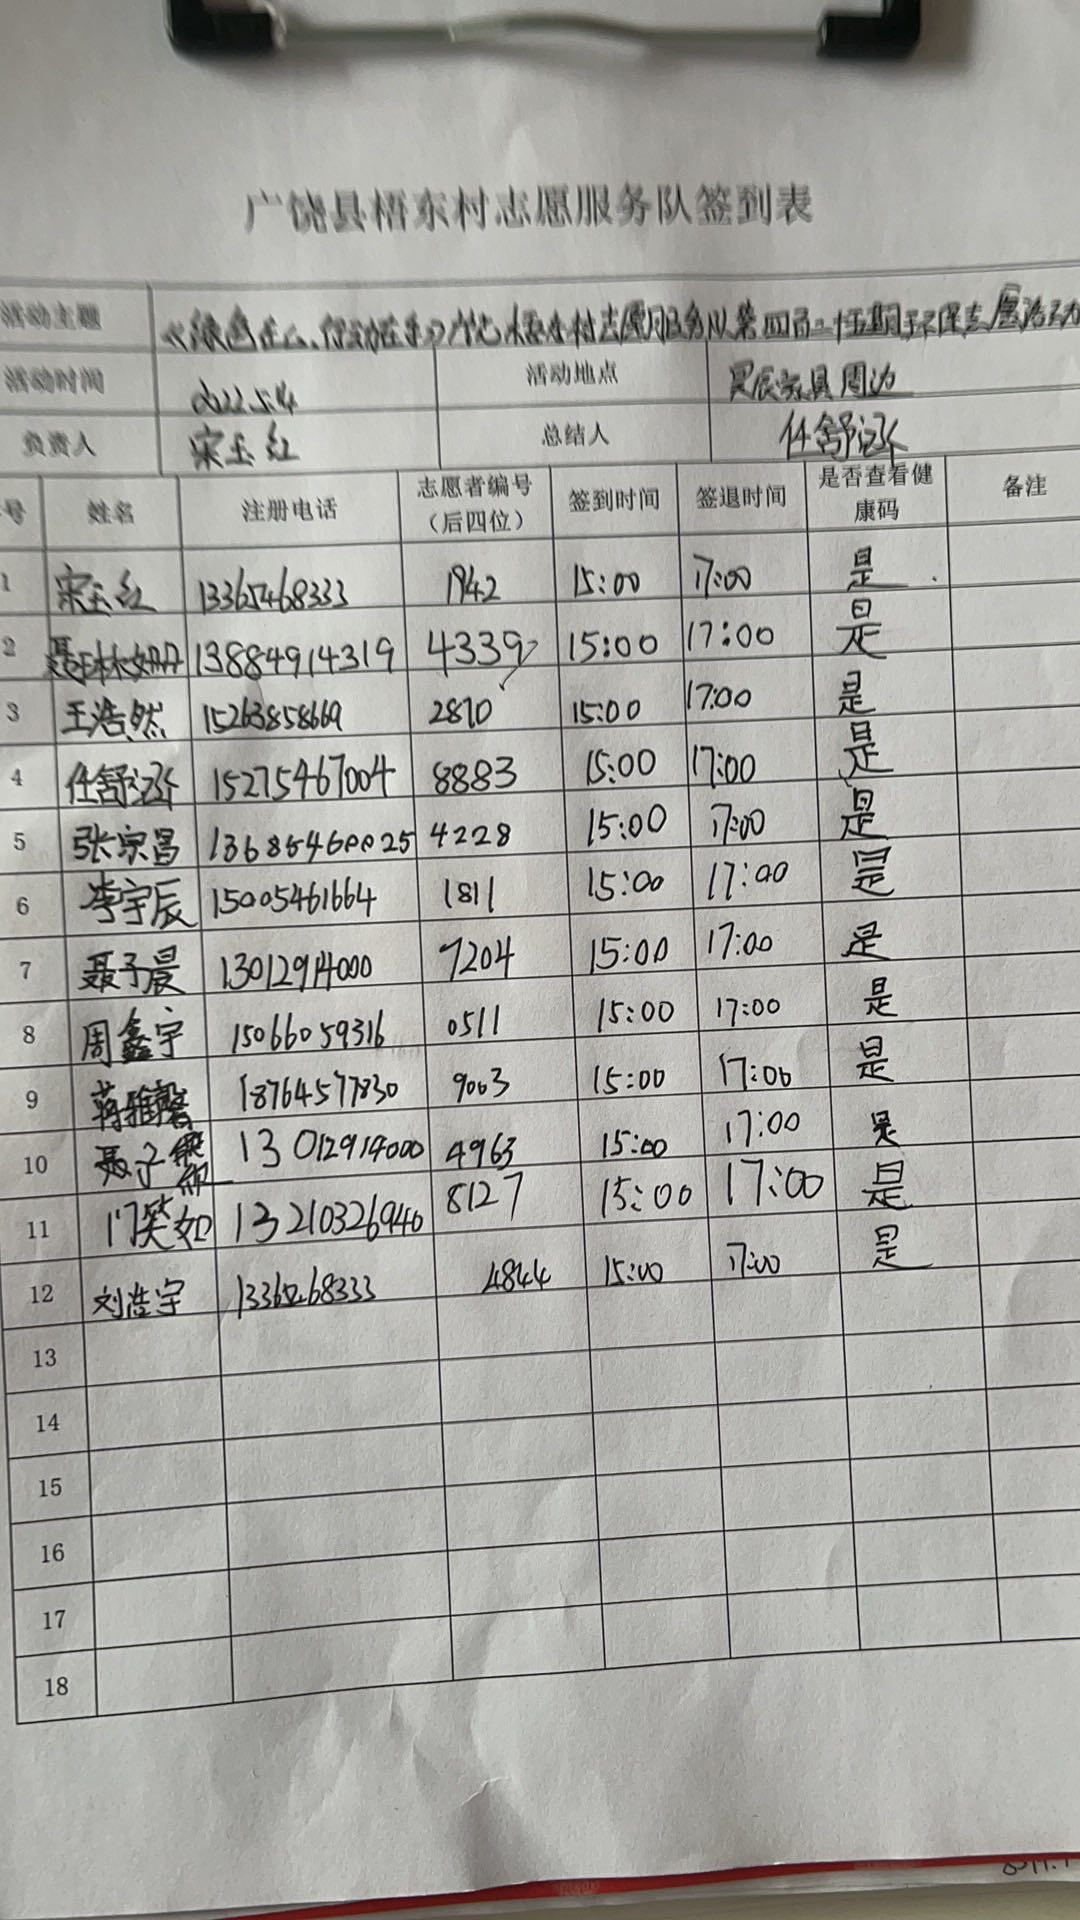 广饶县梧东村志愿服务队签到表
活动主题 《绿色在心、行动在手》广饶梧东村志愿服务队第四百二十五期环保志愿活动
活动时间 2022.5.4 活动地点 昊辰家具周边
负责人 宋玉红 总结人 任舒涵
号 姓名 注册电话 志愿者编号（后四位） 签到时间 签退时间 是否查看健康码 备注
1 宋玉红 13365468333 1942 15:00 17:00 是
2 13884914319 4339 15:00 17:00 是
3 王浩然 15263858669 2870 15:00 17:00 是
4 任舒涵 15275467004 8883 15:00 17:00 是
5 张宗昌 13685460025 4228 15:00 17:00 是
6 李宇辰 15005461664 1811 15:00 17:00 是
7 聂子晨 13012914000 7204 15:00 17:00 是
8 周鑫宇 15066059316 0511 15:00 17:00 是
9 蒋雅馨 18764577830 9003 15:00 17:00 是
10 聂子 13012914000 4963 15:00 17:00 是
11 门笑如 13210326940 8127 15:00 17:00 是
12 刘浩宇 4844 15:00 17:00 是
13
14
15
16
17
18